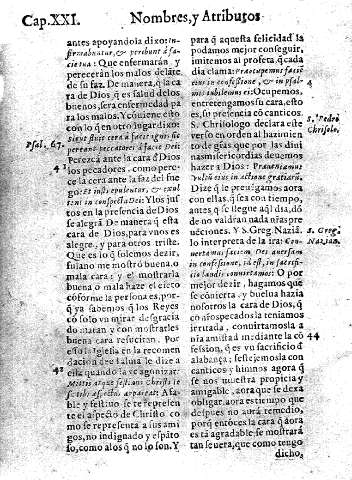 Cap.XXI. Nombres, y Atributos
antes apoyandola dixo: In-
firmabuntur, & peribunt à fa-
cie tua: Que enfermarán y
perecerán los malos delāte
de su faz. De manera, q̃ la ca
ra de Dios, q̃ es salud delos
buenos, sera enfermedad pa
ra los malos. Y cōuiene esto
con lo q̃ en otro lugar dixo:
Sicut fluit cera à facie ignis sic
Psal. 67.
pereant peccatores à facie Dei:
Perezcā ante la cara đ Dios
los pecadores, como pere-
ce la cera ante la faz del fue
go: Et iusti epulentur, & exul
tent in conspectu Dei: Y los jus
tos en la presencia de Dios
se alegrē. De manera q̃ esta
cara de Dios, para vnos es
alegre, y para otros triste.
Que es lo q̃ solemos dezir,
fulano me mostró buena, o
mala cara: y el mostrarla
buena o mala haze el efeto
cōforme la persona es, por-
q̃ ya sabemos q̃ los Reyes
cō solo vn mirar desgracia
do matan y con mostrarles
buena cara resucitan. Por
esso la yglesia en la recomen
dacion dela alma le dize a
ella quando la ve agonizar:
Mitis atque festiuus Christi Ie
su tibi aspectus appareat: Afa-
ble y festiuo se te represen-
te el aspecto de Christo co
mo se representa a sus ami
gos, no indignado y espāto
so, como a los q̃ no lo son. Y
para q̃ aquesta felicidad la
podamos mejor conseguir,
imitemos al profeta, q̃ cada
dia clama: Praeoccupemus faciē
eius in confessione, & in psal-
mis iubilemus ei: Ocupemos,
entretengamos su cara, esto
es, su presencia cō canticos.
S. Pedro
Chrisolo.
S. Chrisologo declara este
verso en orden al hazimien
to de gr̃as que por las diui
nas misericordias deuemos
hazer a Dios: Praeueniamus
vultū eius in actione gratiarū.
Dize q̃ le preuēgamos aora
con ellas, q̃ sea con tiempo,
antes q̃ se llegue aq̃l dia, dō
de no valdran nada n̄ras pre
uēciones. Y S. Greg. Naziā.
S. Greg.
Nazian.
lo interpreta de la ira: Con
uertamus faciem Dei auersam
in confessione, id est, in sacrifi-
cio laudis conuertamus: O por
mejor dezir, hagamos que
se cōuierta, y buelua hazia
nosotros la cara de Dios, q̃
cō nr̄os pecados la teniamos
irritada, conuirtamosla a
44
n̄ra amistad mediante la cō
fession, q̃ es vn sacrificio đ
alabança; festejemosla con
canticos y himnos agora q̃
se nos muestra propicia y
amigable, aora que se dexa
obligar, aora es tiempo que
despues no aurá remedio,
porq̃ entōces la cara q̃ aora
es tā agradable se mostrará
tan seuera, que como tengo
dicho,